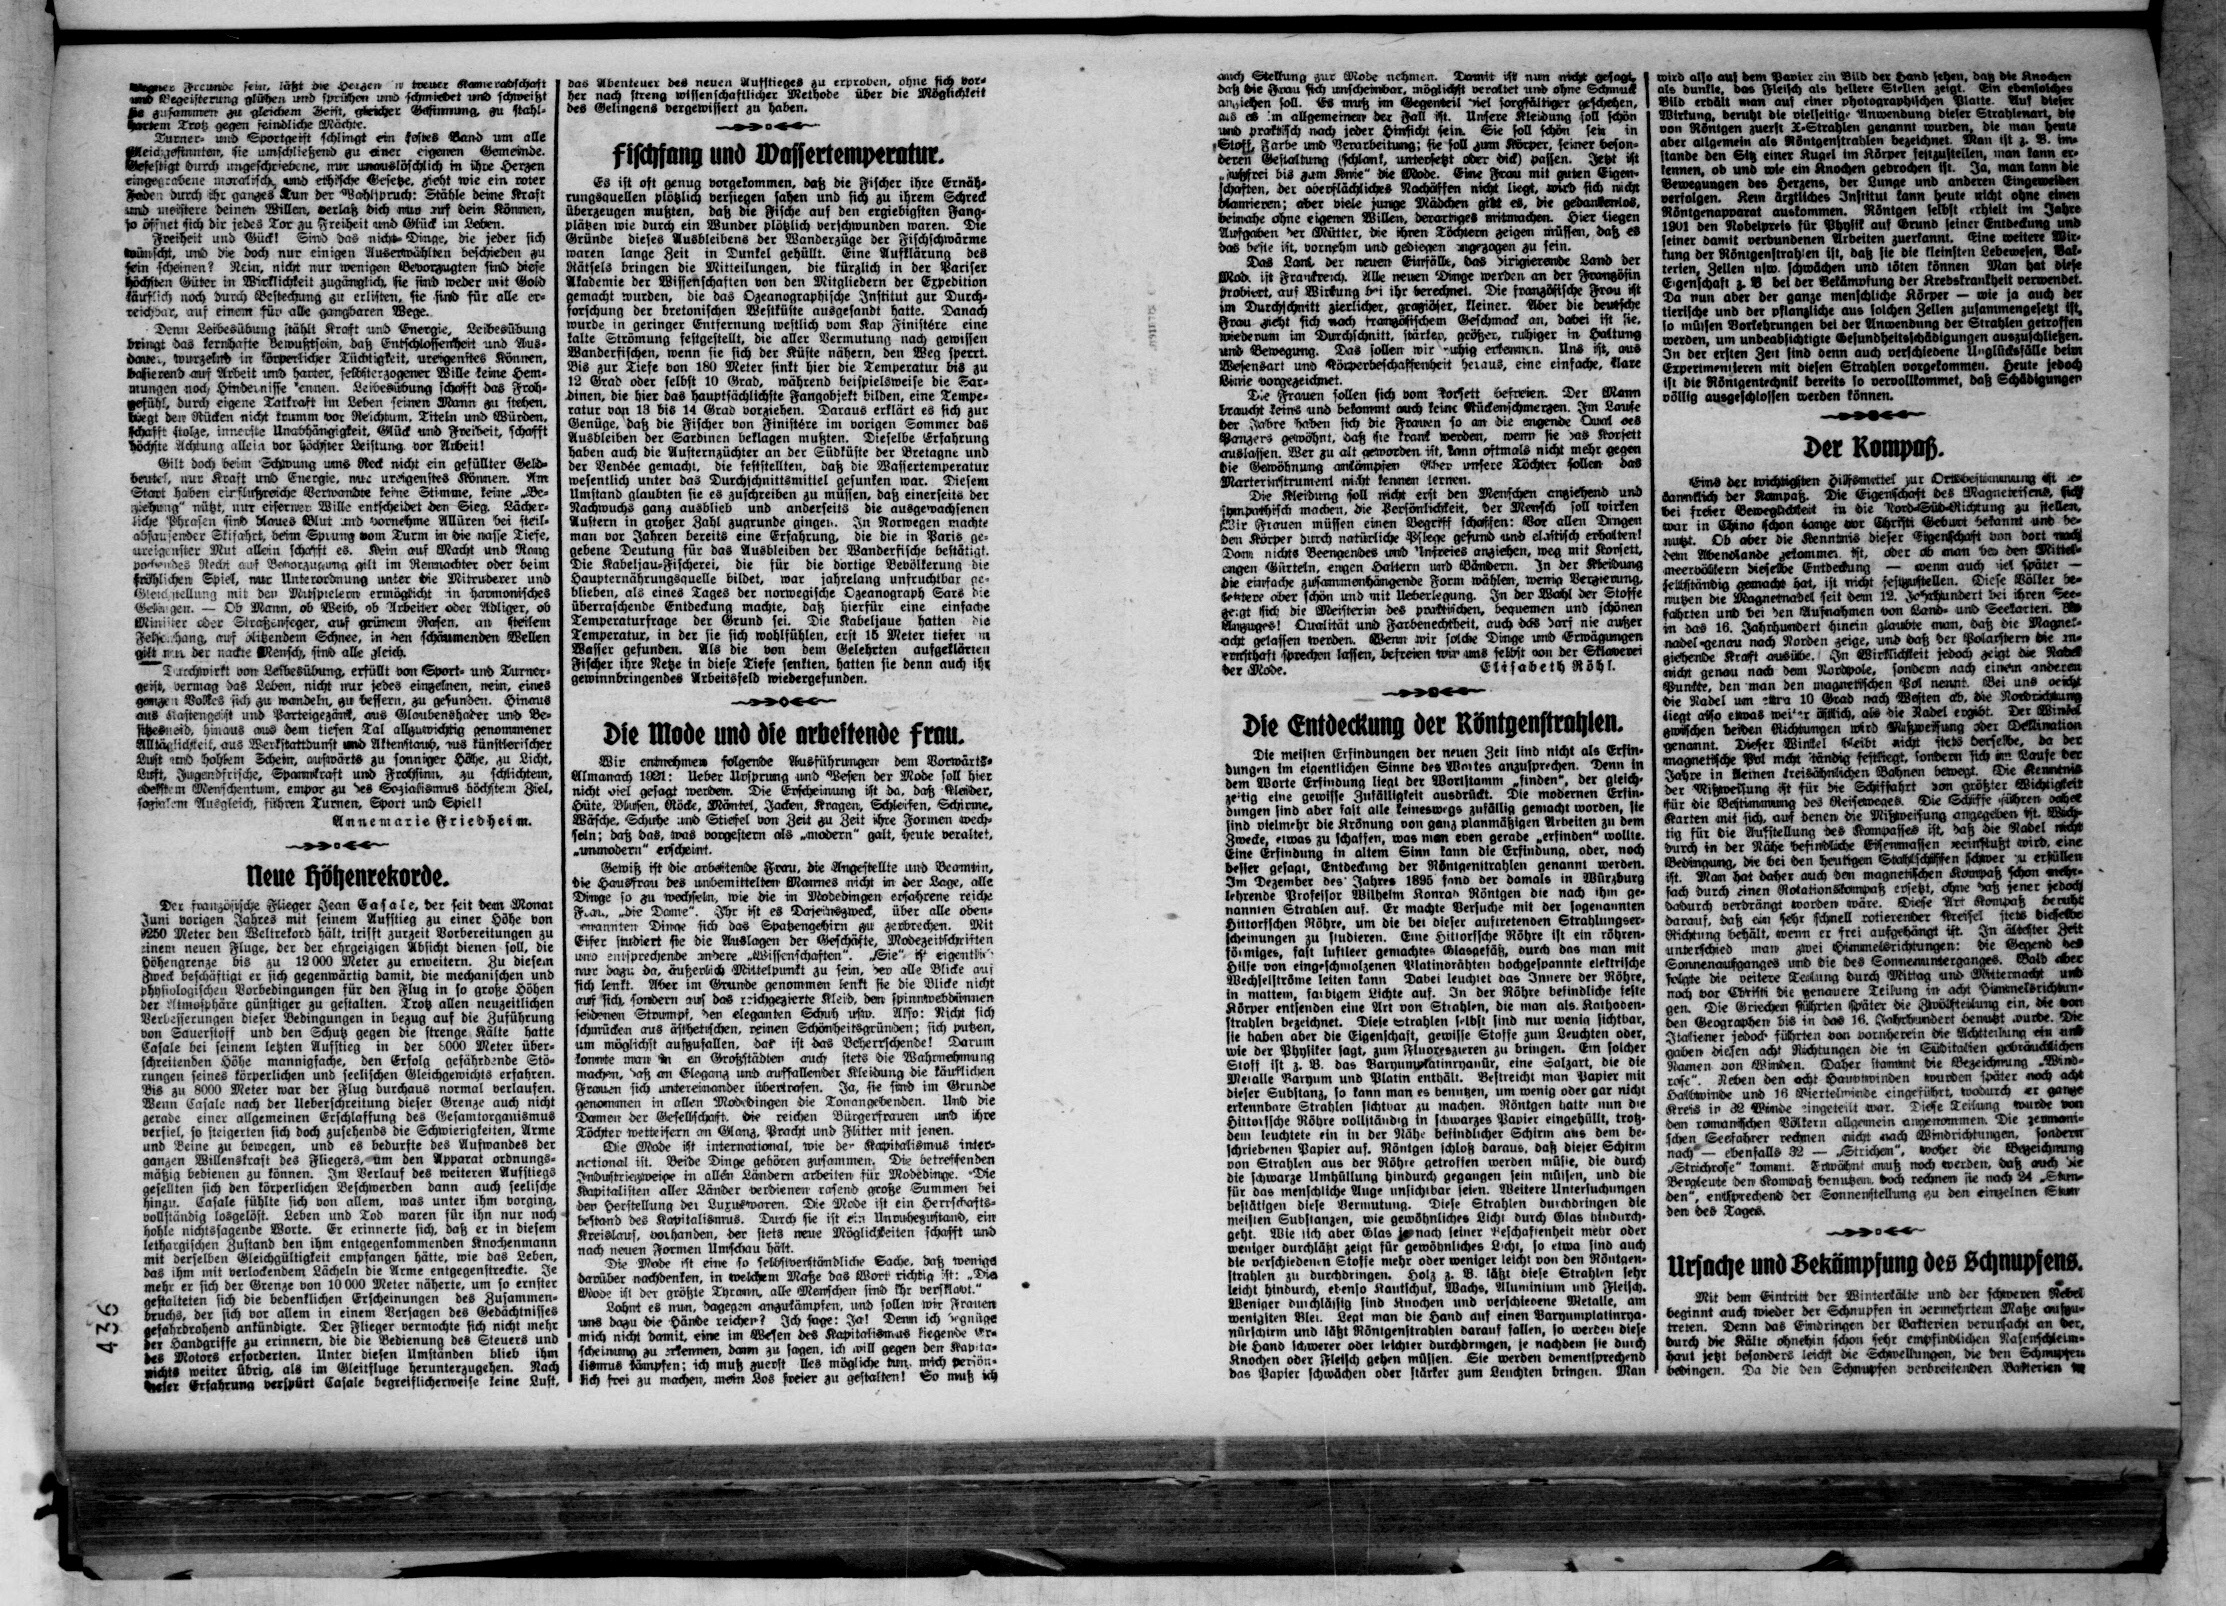 Gegner Freunde sein, läßt die Herzen in treuer Kameradschaft
und Begeisterung glühen und sprühen und schmiedet und schweißt
sie zusammen zu gleichem Geist, gleicher Gesinnung, zu stahl-
hartem Trotz gegen feindliche Mächte.
Turner- und Sportgeist schlingt ein festes Band um alle
Gleichgesinnten, sie umschließend zu einer eigenen Gemeinde.
Gefestigt durch ungeschriebene, nur unauslöschlich in ihre Herzen
eingegrabene moralische und ethische Gesetze, zieht wie ein roter
Faden durch ihr ganzes Tun der Wahlspruch: Stähle deine Kraft
und meistere deinen Willen, verlaß dich nur auf dein Können,
so öffnet sich dir jedes Tor zu Freiheit und Glück im Leben.
Freiheit und Gück! Sind das nicht Dinge, die jeder sich
wünscht, und die doch nur einigen Auserwählten beschieden zu
sein scheinen? Nein, nicht nur wenigen Bevorzugten sind diese
höchsten Güter in Wirklichkeit zugänglich, sie sind weder mit Gold
käuflich noch durch Bestechung zu erlisten, sie sind für alle er-
reichbar, auf einem für alle gangbaren Wege.
Denn Leibesübung stählt Kraft und Energie, Leibesübung
bringt das kernhafte Bewußtsein, daß Entschlossenheit und Aus-
dauer, wurzelnd in körperlicher Tüchtigkeit, ureigenstes Können,
basierend auf Arbeit und harter, selbsterzogener Wille keine Hem-
mungen noch Hindernisse kennen. Leibesübung schafft das Froh-
gefühl, durch eigene Tatkraft im Leben seinen Mann zu stehen,
biegt den Rücken nicht krumm vor Reichtum, Titeln und Würden,
schafft stolze, innerste Unabhängigkeit, Glück und Freiheit, schafft
höchste Achtung allein vor höchster Leistung, vor Arbeit!
Gilt doch beim Schwung ums Reck nicht ein gefüllter Geld-
beutel, nur Kraft und Energie, nur ureigenstes Können. Am
Start haben einflußreiche Verwandte keine Stimme, keine „Be-
ziehung“ nützt, nur eiserner Wille entscheidet den Sieg. Lächer-
liche Phrasen sind blaues Blut und vornehme Allüren bei steil-
absausender Skifahrt, beim Sprung vom Turm in die nasse Tiefe,
ureigenster Mut allein schafft es. Kein auf Macht und Rang
pochendes Recht auf Bevorzugung gilt im Rennachter oder beim
fröhlichen Spiel, nur Unterordnung unter die Mitruderer und
Gleichstellung mit den Mitspielern ermöglicht ein harmonisches
Gelingen. — Ob Mann, ob Weib, ob Arbeiter oder Adliger, ob
Minister oder Straßenfeger, auf grünem Rasen, an steilem
Felsenhang, auf blitzendem Schnee, in den schäumenden Wellen
gilt nun der nackte Mensch, sind alle gleich.
Durchwirkt von Leibesübung, erfüllt von Sport- und Turner-
geist, vermag das Leben, nicht nur jedes einzelnen, nein, eines
ganzen Volkes sich zu wandeln, zu bessern, zu gesunden. Hinaus
aus Kastengeist und Parteigezänk, aus Glaubenshader und Be-
sitzesneid, hinaus aus dem tiefen Tal allzuwichtig genommener
Alltäglichkeit, aus Werkstattdunst und Aktenstaub, aus künstlerischer
Luft und hohlem Schein, aufwärts zu sonniger Höhe, zu Licht,
Luft, Jugendfrische, Spannkraft und Frohsinn, zu schlichtem,
edelstem Menschentum, empor zu des Sozialismus höchstem Ziel,
sozialem Ausgleich, führen Turnen, Sport und Spiel!
Annemarie Friedheim.
Neue Höhenrekorde.
Der französische Flieger Jean Casale, der seit dem Monat
Juni vorigen Jahres mit seinem Aufstieg zu einer Höhe von
9250 Meter den Weltrekord hält, trifft zurzeit Vorbereitungen zu
einem neuen Fluge, der der ehrgeizigen Absicht dienen soll, die
Höhengrenze bis zu 12 000 Meter zu erweitern. Zu diesem
Zweck beschäftigt er sich gegenwärtig damit, die mechanischen und
physiologischen Vorbedingungen für den Flug in so große Höhen
der Atmosphäre günstiger zu gestalten. Trotz allen neuzeitlichen
Verbesserungen dieser Bedingungen in bezug auf die Zuführung
von Sauerstoff und den Schutz gegen die strenge Kälte hatte
Casale bei seinem letzten Aufstieg in der 8000 Meter über-
schreitenden Höhe mannigfache, den Erfolg gefährdende Stö-
rungen seines körperlichen und seelischen Gleichgewichts erfahren.
Bis zu 8000 Meter war der Flug durchaus normal verlaufen.
Wenn Casale nach der Ueberschreitung dieser Grenze auch nicht
gerade einer allgemeinen Erschlaffung des Gesamtorganismus
verfiel, so steigerten sich doch zusehends die Schwierigkeiten, Arme
und Beine zu bewegen, und es bedurfte des Aufwandes der
ganzen Willenskraft des Fliegers, um den Apparat ordnungs-
mäßig bedienen zu können. Im Verlauf des weiteren Aufstiegs
gesellten sich den körperlichen Beschwerden dann auch seelische
hinzu. Casale fühlte sich von allem, was unter ihm vorging,
vollständig losgelöst. Leben und Tod waren für ihn nur noch
hohle nichtssagende Worte. Er erinnerte sich, daß er in diesem
lethargischen Zustand den ihm entgegenkommenden Knochenmann
mit derselben Gleichgültigkeit empfangen hätte, wie das Leben,
das ihm mit verlockendem Lächeln die Arme entgegenstreckte. Je
mehr er sich der Grenze von 10 000 Meter näherte, um so ernster
gestalteten sich die bedenklichen Erscheinungen des Zusammen-
bruchs, der sich vor allem in einem Versagen des Gedächtnisses
gefahrdrohend ankündigte. Der Flieger vermochte sich nicht mehr
der Handgriffe zu erinnern, die die Bedienung des Steuers und
des Motors erforderten. Unter diesen Umständen blieb ihm
nichts weiter übrig, als im Gleitfluge herunterzugehen. Nach
dieser Erfahrung verspürt Casale begreiflicherweise keine Lust,
das Abenteuer des neuen Aufstieges zu erproben, ohne sich vor-
her nach streng wissenschaftlicher Methode über die Möglichkeit
des Gelingens vergewissert zu haben.
Fischfang und Wassertemperatur.
Es ist oft genug vorgekommen, daß die Fischer ihre Ernäh-
rungsquellen plötzlich versiegen sahen und sich zu ihrem Schreck
überzeugen mußten, daß die Fische auf den ergiebigsten Fang-
plätzen wie durch ein Wunder plötzlich verschwunden waren. Die
Gründe dieses Ausbleibens der Wanderzüge der Fischschwärme
waren lange Zeit in Dunkel gehüllt. Eine Aufklärung des
Rätsels bringen die Mitteilungen, die kürzlich in der Pariser
Akademie der Wissenschaften von den Mitgliedern der Expedition
gemacht wurden, die das Ozeanographische Institut zur Durch-
forschung der bretonischen Westküste ausgesandt hatte. Danach
wurde in geringer Entfernung westlich vom Kap Finistére eine
kalte Strömung festgestellt, die aller Vermutung nach gewissen
Wanderfischen, wenn sie sich der Küste nähern, den Weg sperrt.
Bis zur Tiefe von 180 Meter sinkt hier die Temperatur bis zu
12 Grad oder selbst 10 Grad, während beispielsweise die Sar-
dinen, die hier das hauptsächlichste Fangobjekt bilden, eine Tempe-
ratur von 13 bis 14 Grad vorziehen. Daraus erklärt es sich zur
Genüge, daß die Fischer von Finistére im vorigen Sommer das
Ausbleiben der Sardinen beklagen mußten. Dieselbe Erfahrung
haben auch die Austernzüchter an der Südküste der Bretagne und
der Vendée gemacht, die feststellten, daß die Wassertemperatur
wesentlich unter das Durchschnittsmittel gesunken war. Diesem
Umstand glaubten sie es zuschreiben zu müssen, daß einerseits der
Nachwuchs ganz ausblieb und anderseits die ausgewachsenen
Austern in großer Zahl zugrunde gingen. In Norwegen machte
man vor Jahren bereits eine Erfahrung, die die in Paris ge-
gebene Deutung für das Ausbleiben der Wanderfische bestätigt.
Die Kabeljau-Fischerei, die für die dortige Bevölkerung die
Haupternährungsquelle bildet, war jahrelang unfruchtbar ge-
blieben, als eines Tages der norwegische Ozeanograph Sars die
überraschende Entdeckung machte, daß hierfür eine einfache
Temperaturfrage der Grund sei. Die Kabeljaue hatten die
Temperatur, in der sie sich wohlfühlen, erst 15 Meter tiefer im
Wasser gefunden. Als die von dem Gelehrten aufgeklärten
Fischer ihre Netze in diese Tiefe senkten, hatten sie denn auch ihr
gewinnbringendes Arbeitsfeld wiedergefunden.
Die Mode und die arbeitende Frau.
Wir entnehmen folgende Ausführungen dem Vorwärts-
Almanach 1921: Ueber Ursprung und Wesen der Mode soll hier
nicht viel gesagt werden. Die Erscheinung ist da, daß Kleider,
Hüte, Blusen, Röcke, Mäntel, Jacken, Kragen, Schleifen, Schirme,
Wäsche, Schuhe und Stiefel von Zeit zu Zeit ihre Formen wech-
seln; daß das, was vorgestern als „modern“ galt, heute veraltet,
„unmodern“ erscheint.
Gewiß ist die arbeitende Frau, die Angestellte und Beamtin,
die Hausfrau des unbemittelten Mannes nicht in der Lage, alle
Dinge so zu wechseln, wie die in Modedingen erfahrene reiche
Frau, „die Dame“. Ihr ist es Daseinszweck, über alle oben-
genannten Dinge sich das Spatzengehirn zu zerbrechen. Mit
Eifer studiert sie die Auslagen der Geschäfte, Modezeitschriften
und entsprechende andere „Wissenschaften“. „Sie“ ist eigentlich
nur dazu da, äußerlich Mittelpunkt zu sein, der alle Blicke auf
sich lenkt. Aber im Grunde genommen lenkt sie die Blicke nicht
auf sich, sondern auf das reichgezierte Kleid, den spinnwebdünnen
seidenen Strumpf, den eleganten Schuh usw. Also: Nicht sich
schmücken aus ästhetischen, reinen Schönheitsgründen; sich putzen,
um möglichst aufzufallen, das ist das Beherrschende! Darum
konnte man in den Großstädten auch stets die Wahrnehmung
machen, daß an Eleganz und auffallender Kleidung die käuflichen
Frauen sich untereinander übertrafen. Ja, sie sind im Grunde
genommen in allen Modedingen die Tonangebenden. Und die
Damen der Gesellschaft, die reichen Bürgerfrauen und ihre
Töchter wetteifern an Glanz, Pracht und Flitter mit jenen.
Die Mode ist international, wie der Kapitalismus inter-
national ist. Beide Dinge gehören zusammen. Die betreffenden
Industriezweige in allen Ländern arbeiten für Modedinge. Die
Kapitalisten aller Länder verdienen rasend große Summen bei
der Herstellung der Luxuswaren. Die Mode ist ein Herrschafts-
bestand des Kapitalismus. Durch sie ist ein Unruhezustand, ein
Kreislauf, vorhanden, der stets neue Möglichkeiten schafft und
nach neuen Formen Umschau hält.
Die Mode ist eine so selbstverständliche Sache, daß wenige
darüber nachdenken, in welchem Maße das Wort richtig ist: „Die
Mode ist der größte Tyrann, alle Menschen sind ihr versklavt.“
Lohnt es nun, dagegen anzukämpfen, und sollen wir Frauen
uns dazu die Hände reichen? Ich sage: Ja! Denn ich begnüge
mich nicht damit, eine im Wesen des Kapitalismus liegende Er-
scheinung zu erkennen, dann zu sagen, ich will gegen den Kapita-
lismus kämpfen; ich muß zuerst alles mögliche tun, mich persön-
lich frei zu machen, mein Los freier zu gestalten! So muß ich
auch Stellung zur Mode nehmen. Damit ist nun nicht gesagt,
daß die Frau sich unscheinbar, möglichst veraltet und ohne Schmuck
anziehen soll. Es muß im Gegenteil viel sorgfältiger geschehen,
als es im allgemeinen der Fall ist. Unsere Kleidung soll schön
und praktisch nach jeder Hinsicht sein. Sie soll schön sein in
Stoff, Farbe und Verarbeitung; sie soll zum Körper, seiner beson-
deren Gestaltung (schlank, untersetzt oder dick) passen. Jetzt ist
„fußfrei bis zum Knie“ die Mode. Eine Frau mit guten Eigen-
schaften, der oberflächliches Nachäffen nicht liegt, wird sich nicht
blamieren; aber viele junge Mädchen gibt es, die gedankenlos,
beinahe ohne eigenen Willen, derartiges mitmachen. Hier liegen
Aufgaben der Mütter, die ihren Töchtern zeigen müssen, daß es
das beste ist, vornehm und gediegen angezogen zu sein.
Das Land der neuen Einfälle, das dirigierende Land der
Mode ist Frankreich. Alle neuen Dinge werden an der Französin
probiert, auf Wirkung bei ihr berechnet. Die französische Frau ist
im Durchschnitt zierlicher, graziöser, kleiner. Aber die deutsche
Frau zieht sich nach französischem Geschmack an, dabei ist sie,
wiederum im Durchschnitt, stärker, größer, ruhiger in Haltung
und Bewegung. Das sollen wir ruhig erkennen. Uns ist, aus
Wesensart und Körperbeschaffenheit heraus, eine einfache, klare
Linie vorgezeichnet.
Die Frauen sollen sich vom Korsett befreien. Der Mann
braucht keins und bekommt auch keine Rückenschmerzen. Im Laufe
der Jahre haben sich die Frauen so an die engende Qual des
Panzers gewöhnt, daß sie krank werden, wenn sie das Korsett
auslassen. Wer zu alt geworden ist, kann oftmals nicht mehr gegen
die Gewöhnung ankämpfen. Aber unsere Töchter sollen das
Marterinstrument nicht kennen lernen.
Die Kleidung soll nicht erst den Menschen anziehend und
sympathisch machen, die Persönlichkeit, der Mensch soll wirken
Wir Frauen müssen einen Begriff schaffen: Vor allen Dingen
den Körper durch natürliche Pflege gesund und elastisch erhalten!
Dann nichts Beengendes und Unfreies anziehen, weg mit Korsett,
engen Gürteln, engen Haltern und Bändern. In der Kleidung
die einfache zusammenhängende Form wählen, wenig Verzierung,
letztere aber schön und mit Ueberlegung. In der Wahl der Stoffe
zeigt sich die Meisterin des praktischen, bequemen und schönen
Anzuges! Qualität und Farbenechtheit, auch das darf nie außer
acht gelassen werden. Wenn wir solche Dinge und Erwägungen
ernsthaft sprechen lassen, befreien wir uns selbst von der Sklaverei
der Mode. Elisabeth Röhl.
Die Entdeckung der Röntgenstrahlen.
Die meisten Erfindungen der neuen Zeit sind nicht als Erfin-
dungen im eigentlichen Sinne des Wortes anzusprechen. Denn in
dem Worte Erfindung liegt der Wortstamm „finden“, der gleich-
zeitig eine gewisse Zufälligkeit ausdrückt. Die modernen Erfin-
dungen sind aber fast alle keineswegs zufällig gemacht worden, sie
sind vielmehr die Krönung von ganz planmäßigen Arbeiten zu dem
Zwecke, etwas zu schaffen, was man eben gerade „erfinden“ wollte.
Eine Erfindung in altem Sinn kann die Erfindung, oder, noch
besser gesagt, Entdeckung der Röntgenstrahlen genannt werden.
Im Dezember des Jahres 1895 fand der damals in Würzburg
lehrende Professor Wilhelm Konrad Röntgen die nach ihm ge-
nannten Strahlen auf. Er machte Versuche mit der sogenannten
Hittorfschen Röhre, um die bei dieser auftretenden Strahlungser-
scheinungen zu studieren. Eine Hittorfsche Röhre ist ein röhren-
förmiges, fast luftleer gemachtes Glasgefäß, durch das man mit
Hilfe von eingeschmolzenen Platindrähten hochgespannte elektrische
Wechselströme leiten kann Dabei leuchtet das Innere der Röhre,
in mattem, farbigem Lichte auf. In der Röhre befindliche feste
Körper entsenden eine Art von Strahlen, die man als Kathoden-
strahlen bezeichnet. Diese Strahlen selbst sind nur wenig sichtbar,
sie haben aber die Eigenschaft, gewisse Stoffe zum Leuchten oder,
wie der Physiker sagt, zum Fluoreszieren zu bringen. Ein solcher
Stoff ist z. B. das Baryumplatinzyanür, eine Salzart, die die
Metalle Baryum und Platin enthält. Bestreicht man Papier mit
dieser Substanz, so kann man es benutzen, um wenig oder gar nicht
erkennbare Strahlen sichtbar zu machen. Röntgen hatte nun die
Hittorfsche Röhre vollständig in schwarzes Papier eingehüllt, trotz-
dem leuchtete ein in der Nähe befindlicher Schirm aus dem be-
schriebenen Papier auf. Röntgen schloß daraus, daß dieser Schirm
von Strahlen aus der Röhre getroffen werden müsse, die durch
die schwarze Umhüllung hindurch gegangen sein müssen, und die
für das menschliche Auge unsichtbar seien. Weitere Untersuchungen
bestätigen diese Vermutung. Diese Strahlen durchdringen die
meisten Substanzen, wie gewöhnliches Licht durch Glas hindurch-
geht. Wie sich aber Glas je nach seiner Beschaffenheit mehr oder
weniger durchläßt zeigt für gewöhnliches Licht, so etwa sind auch
die verschiedenen Stoffe mehr oder weniger leicht von den Röntgen-
strahlen zu durchdringen. Holz z. B. läßt diese Strahlen sehr
leicht hindurch, ebenso Kautschuk, Wachs, Aluminium und Fleisch.
Weniger durchlässig sind Knochen und verschiedene Metalle, am
wenigsten Blei. Legt man die Hand auf einen Baryumplatinzya-
nürschirm und läßt Röntgenstrahlen darauf fallen, so werden diese
die Hand schwerer oder leichter durchdringen, je nachdem sie durch
Knochen oder Fleisch gehen müssen. Sie werden dementsprechend
das Papier schwächen oder stärker zum Leuchten bringen. Man
wird also auf dem Papier ein Bild der Hand sehen, daß die Knochen
als dunkle, das Fleisch als hellere Stellen zeigt. Ein ebensolches
Bild erhält man auf einer photographischen Platte. Auf dieser
Wirkung, beruht die vielseitige Anwendung dieser Strahlenart, die
von Röntgen zuerst X-Strahlen genannt wurden, die man heute
aber allgemein als Röntgenstrahlen bezeichnet. Man ist z. B. im-
stande den Sitz einer Kugel im Körper festzustellen, man kann er-
kennen, ob und wie ein Knochen gebrochen ist. Ja, man kann die
Bewegungen des Herzens, der Lunge und anderen Eingeweiden
verfolgen. Kein ärztliches Institut kann heute nicht ohne einen
Röntgenapparat auskommen. Röntgen selbst erhielt im Jahre
1901 den Nobelpreis für Physik auf Grund seiner Entdeckung und
seiner damit verbundenen Arbeiten zuerkannt. Eine weitere Wir-
kung der Röntgenstrahlen ist, daß sie die kleinsten Lebewesen, Bak-
terien, Zellen usw. schwächen und töten können Man hat diese
Eigenschaft z. B bei der Bekämpfung der Krebskrankheit verwendet.
Da nun aber der ganze menschliche Körper — wie ja auch der
tierische und der pflanzliche aus solchen Zellen zusammengesetzt ist,
so müssen Vorkehrungen bei der Anwendung der Strahlen getroffen
werden, um unbeabsichtigte Gesundheitsschädigungen auszuschließen.
In der ersten Zeit sind denn auch verschiedene Unglücksfälle beim
Experimentieren mit diesen Strahlen vorgekommen. Heute jedoch
ist die Röntgentechnik bereits so vervollkommet, daß Schädigungen
völlig ausgeschlossen werden können.
Der Kompaß.
Eins der wichtigsten Hilfsmittel zur Ortsbestimmung ist be-
kanntlich der Kompaß. Die Eigenschaft des Magneteisens, sich
bei freier Beweglichkeit in die Nord-Süd-Richtung zu stellen,
war in China schon lange vor Christi Geburt bekannt und be-
nutzt. Ob aber die Kenntnis dieser Eigenschaft von dort nach
dem Abendlande gekommen ist, oder ob man bei den Mittel-
meervölkern dieselbe Entdeckung — wenn auch viel später —
selbständig gemacht hat, ist nicht festzustellen. Diese Völker be-
nutzen die Magnetnadel seit dem 12. Jahrhundert bei ihren See-
fahrten und bei den Aufnahmen von Land- und Seekarten. Bis
in das 16. Jahrhundert hinein glaubte man, daß die Magnet-
nadel genau nach Norden zeige, und daß der Polarstern die an-
ziehende Kraft ausübe. In Wirklichkeit jedoch zeigt die Nadel
nicht genau nach dem Nordpole, sondern nach einem anderen
Punkte, den man den magnetischen Pol nennt. Bei uns weicht
die Nadel um etwa 10 Grad nach Westen ab, die Nordrichtung
liegt also etwas weiter östlich, als die Nadel ergibt. Der Winkel
zwischen beiden Richtungen wird Mißweisung oder Deklination
genannt. Dieser Winkel bleibt nicht stets derselbe, da der
magnetische Pol nicht ständig festliegt, sondern sich im Laufe der
Jahre in kleinen kreisähnlichen Bahnen bewegt. Die Kenntnis
der Mißweisung ist für die Schiffahrt von größter Wichtigkeit
für die Bestimmung des Reiseweges. Die Schiffe führen daher
Karten mit sich, auf denen die Mißweisung angegeben ist. Wich-
tig für die Aufstellung des Kompasses ist, daß die Nadel nicht
durch in der Nähe befindliche Eisenmassen beeinflußt wird, eine
Bedingung, die bei den heutigen Stahlschiffen schwer zu erfüllen
ist. Man hat daher auch den magnetischen Kompaß schon mehr-
fach durch einen Rotationskompaß ersetzt, ohne daß jener jedoch
dadurch verdrängt worden wäre. Diese Art Kompaß beruht
darauf, daß ein sehr schnell rotierender Kreisel stets dieselbe
Richtung behält, wenn er frei aufgehängt ist. In ältester Zeit
unterschied man zwei Himmelsrichtungen: die Gegend des
Sonnenaufganges und die des Sonnenunterganges. Bald aber
folgte die weitere Teilung durch Mittag und Mitternacht und
noch vor Christi die genauere Teilung in acht Himmelsrichtun-
gen. Die Griechen führten später die Zwölfteilung ein, die von
den Geographen bis in das 16. Jahrhundert benutzt wurde. Die
Italiener jedoch führten von vornherein die Achtteilung ein und
gaben diesen acht Richtungen die in Süditalien gebräuchlichen
Namen von Winden. Daher stammt die Bezeichnung „Wind-
rose“. Neben den acht Hauptwinden wurden später noch acht
Halbwinde und 16 Viertelwinde eingeführt, wodurch der ganze
Kreis in 32 Winde eingeteilt war. Diese Teilung wurde von
dem romanischen Völkern allgemein angenommen. Die germani-
schen Seefahrer rechnen nicht nach Windrichtungen, sondern
nach — ebenfalls 32 — „Strichen“, woher die Bezeichnung
„Strichrose“ kommt. Erwähnt muß noch werden, daß auch die
Bergleute den Kompaß benutzen, doch rechnen sie nach 24 „Stun-
den“, entsprechend der Sonnenstellung zu den einzelnen Stun-
den des Tages.
Ursache und Bekämpfung des Schnupfens.
Mit dem Eintritt der Winterkälte und der schweren Nebel
beginnt auch wieder der Schnupfen in vermehrtem Maße aufzu-
treten. Denn das Eindringen der Bakterien verursacht an der,
durch die Kälte ohnehin schon sehr empfindlichen Nasenschleim-
haut jetzt besonders leicht die Schwellungen, die den Schnupfen
bedingen. Da die den Schnupfen verbreitenden Bakterien in
436